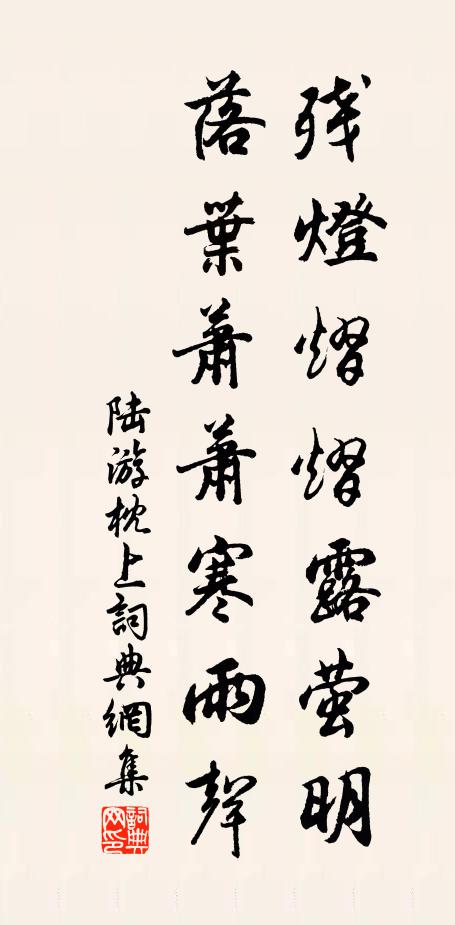 残燈熠熠露萤明
落葉蕭蕭寒雨聲
陆游枕上詞典網集
詞典網印